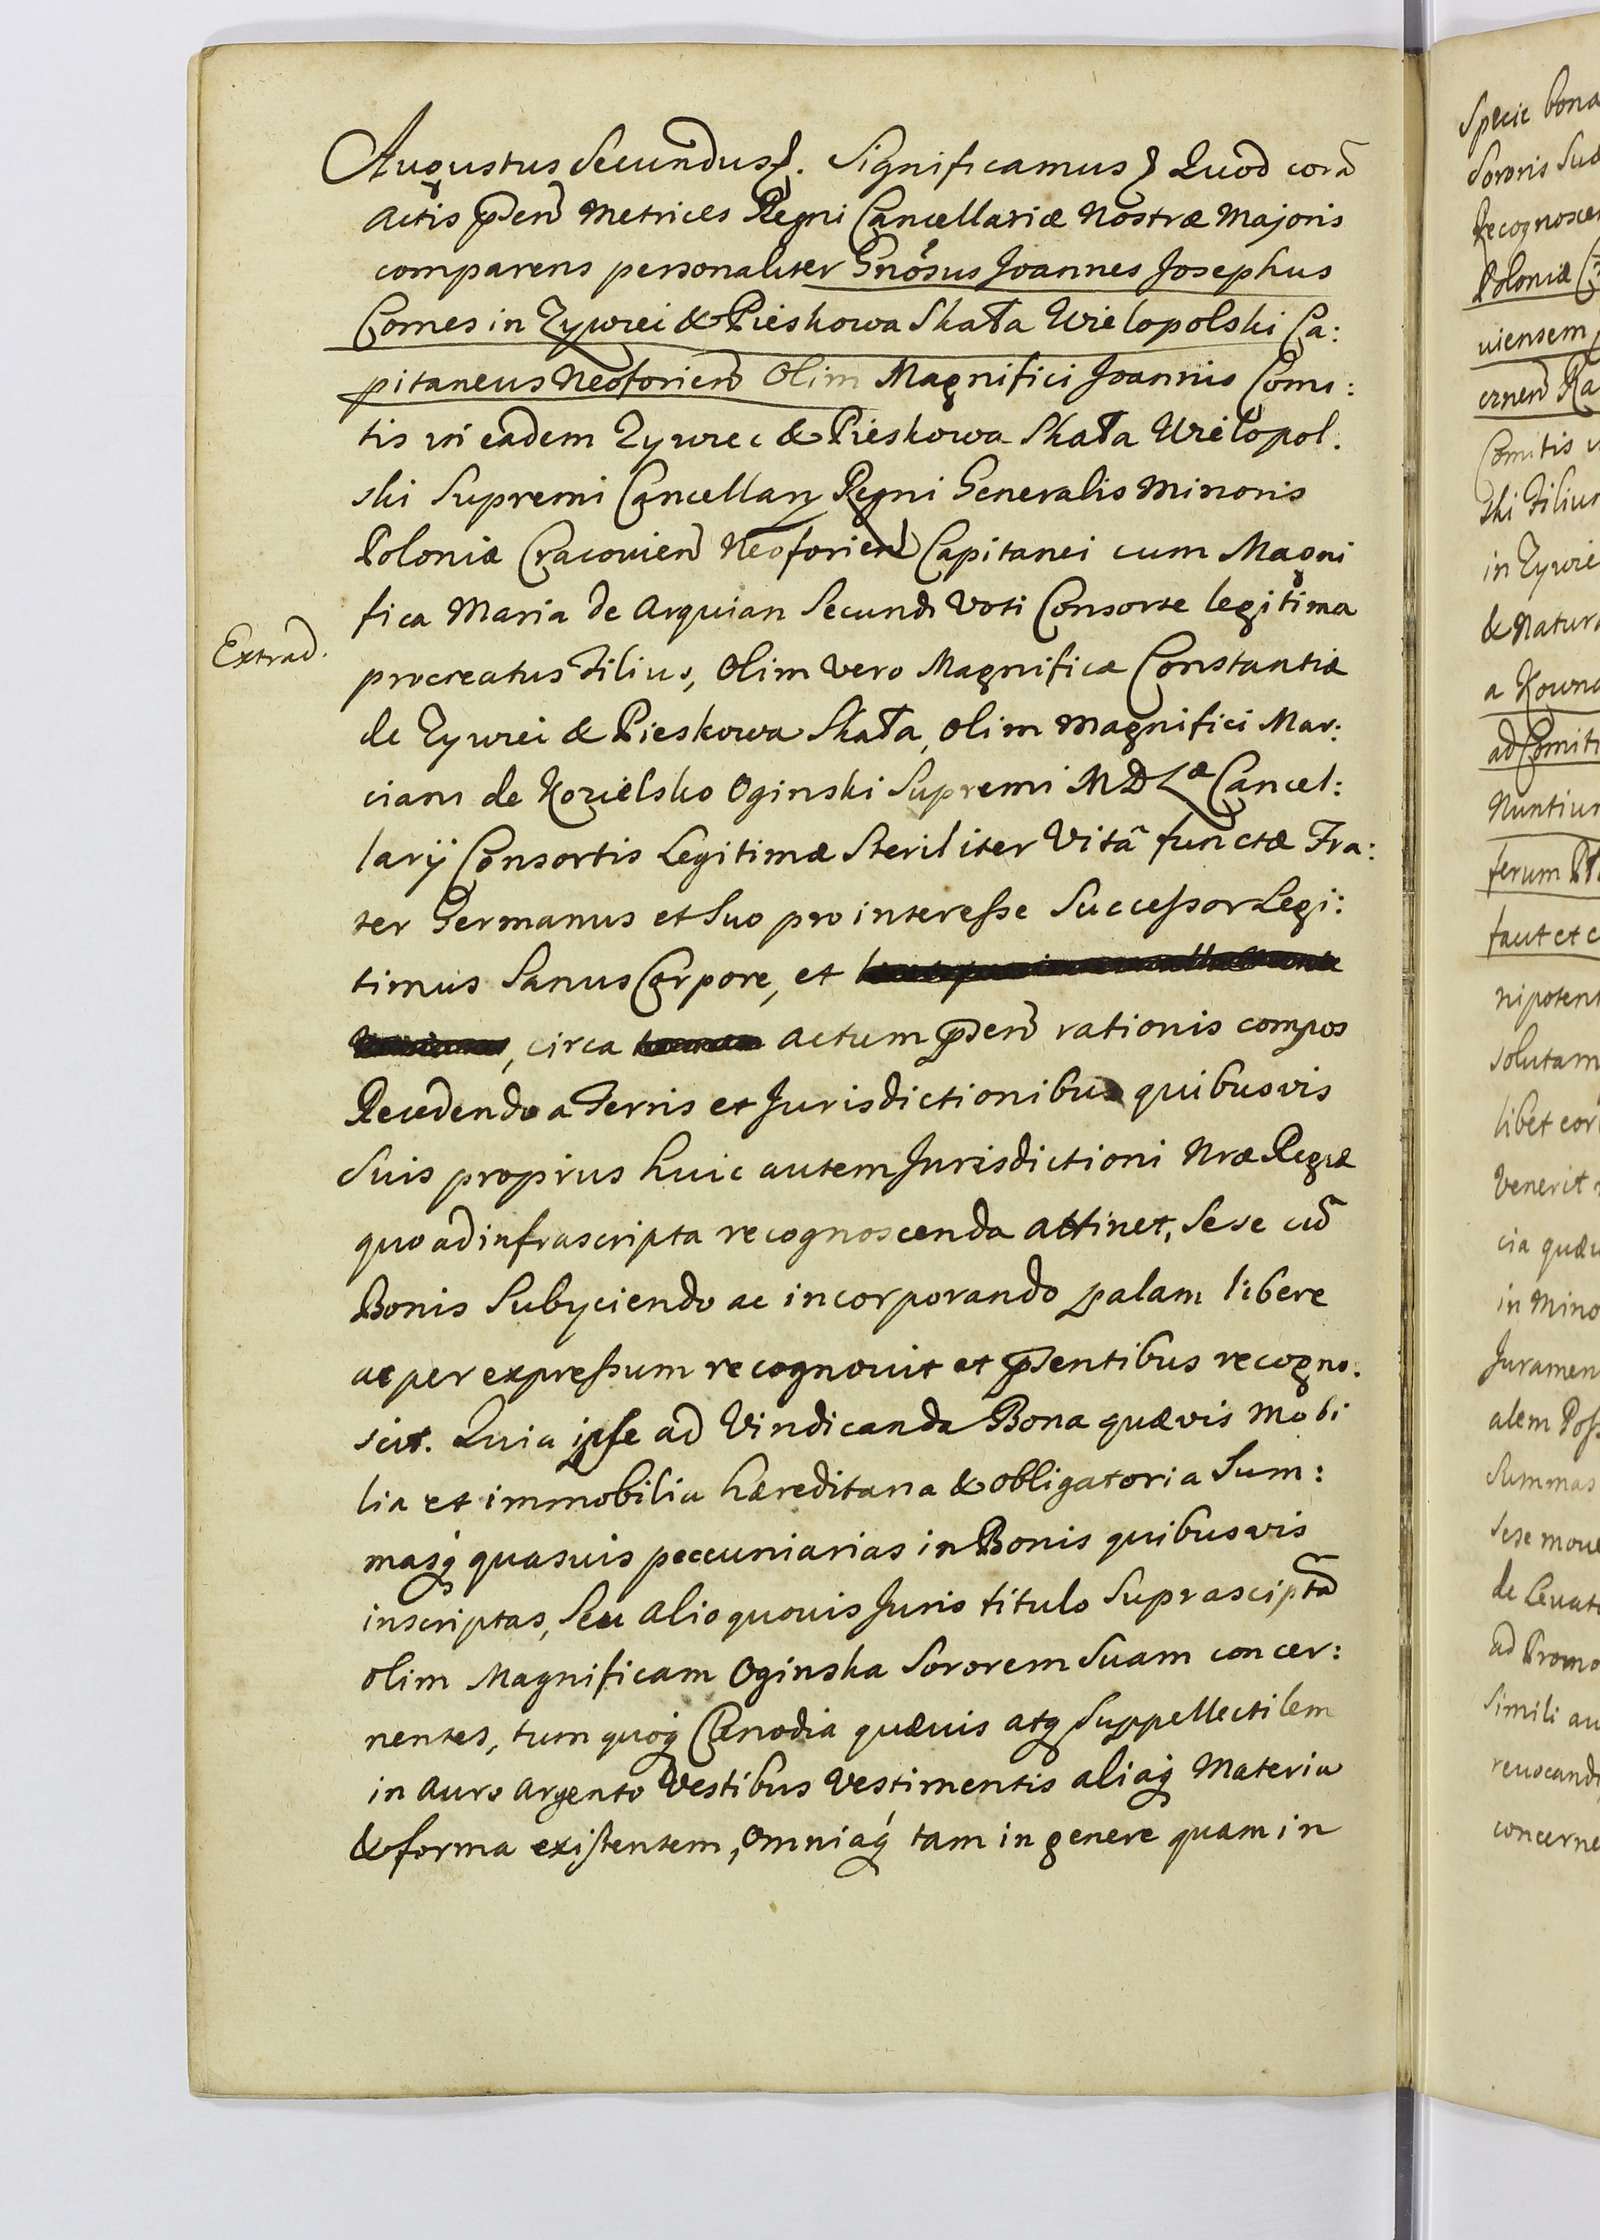 Augustus Secundus. Significamus Quod corā
actis p̄sen̄ Metrices Regni Cancellariæ Nostræ Majoris
comparens personaliter Gnosus Joannes Josephus
Comes in Zywiei & Pieskowa Skała Wielopolski Ca:
pitaneus Neoforien̄ Olim Magnifici Joannis Comi:
tis in eadem Zywiec & Pieskowa Skała Wielopol.
ski Supremi Cancellary Regni Generalis Minoris
Poloniæ Cracovien̄ Neoforien̄ Capitanei cum Magni
fica Maria de Arquian Secundi Voti Consorte legitima
Extrad.
procreatus Filius, Olim Vero Magnificæ Constantiæ
de Zywiei & Pieskowa Skała, olim Magnifici Mar:
ciani de Kozielsko Oginski Supremi M D Læ Cancel:
larij Consortis Legitimæ Steriliter Vitā functæ Fra:
ter Germanus et Suo pro interesse Successor Legi:
timus Sanus Corpore, et
, circa actum p̄sen̄ rationis compos
Recedendo a Terris et Jurisdictionibus quibusvis
Suis proprius huic autem Jurisdictioni Nræ Regiæ
quo ad infrascripta recognoscenda attinet, Sese cū
Bonis Subyciendo ac incorporando palam libere
ac per expressum recognovit et p̄sentibus recogno:
scit. Quia ipse ad Vindicanda Bona quævis Mobi
lia et immobilia hæreditaria & obligatoria Sum:
masq́ quasuis peccuniarias in Bonis quibusvis
inscriptas, Seu alio quovis Juris titulo Suprasciptā
olim Magnificam Oginska Sororem Suam concer:
nentes, tum quoq́ Clenodia quævis atq́ Suppellectilem
in Auro Argento Vestibus Vestimentis aliaq́ Materia
& forma existentem, Omniaq́ tam in genere quam in
Specie bona
Sororis Suæ
Recognoscen
Poloniæ
viensem
Comitis
ski Filius
in Zywie
& Natura
a Kowno
ad Comiti
Nuntium
ferum
faut et c
nipotent
solutam
libet
Venerit
cia quæv
in Mino
Juramen
alem Poss
Summas
Sese move
de Levat
ad Promo
Simili au
revocandi
concerne